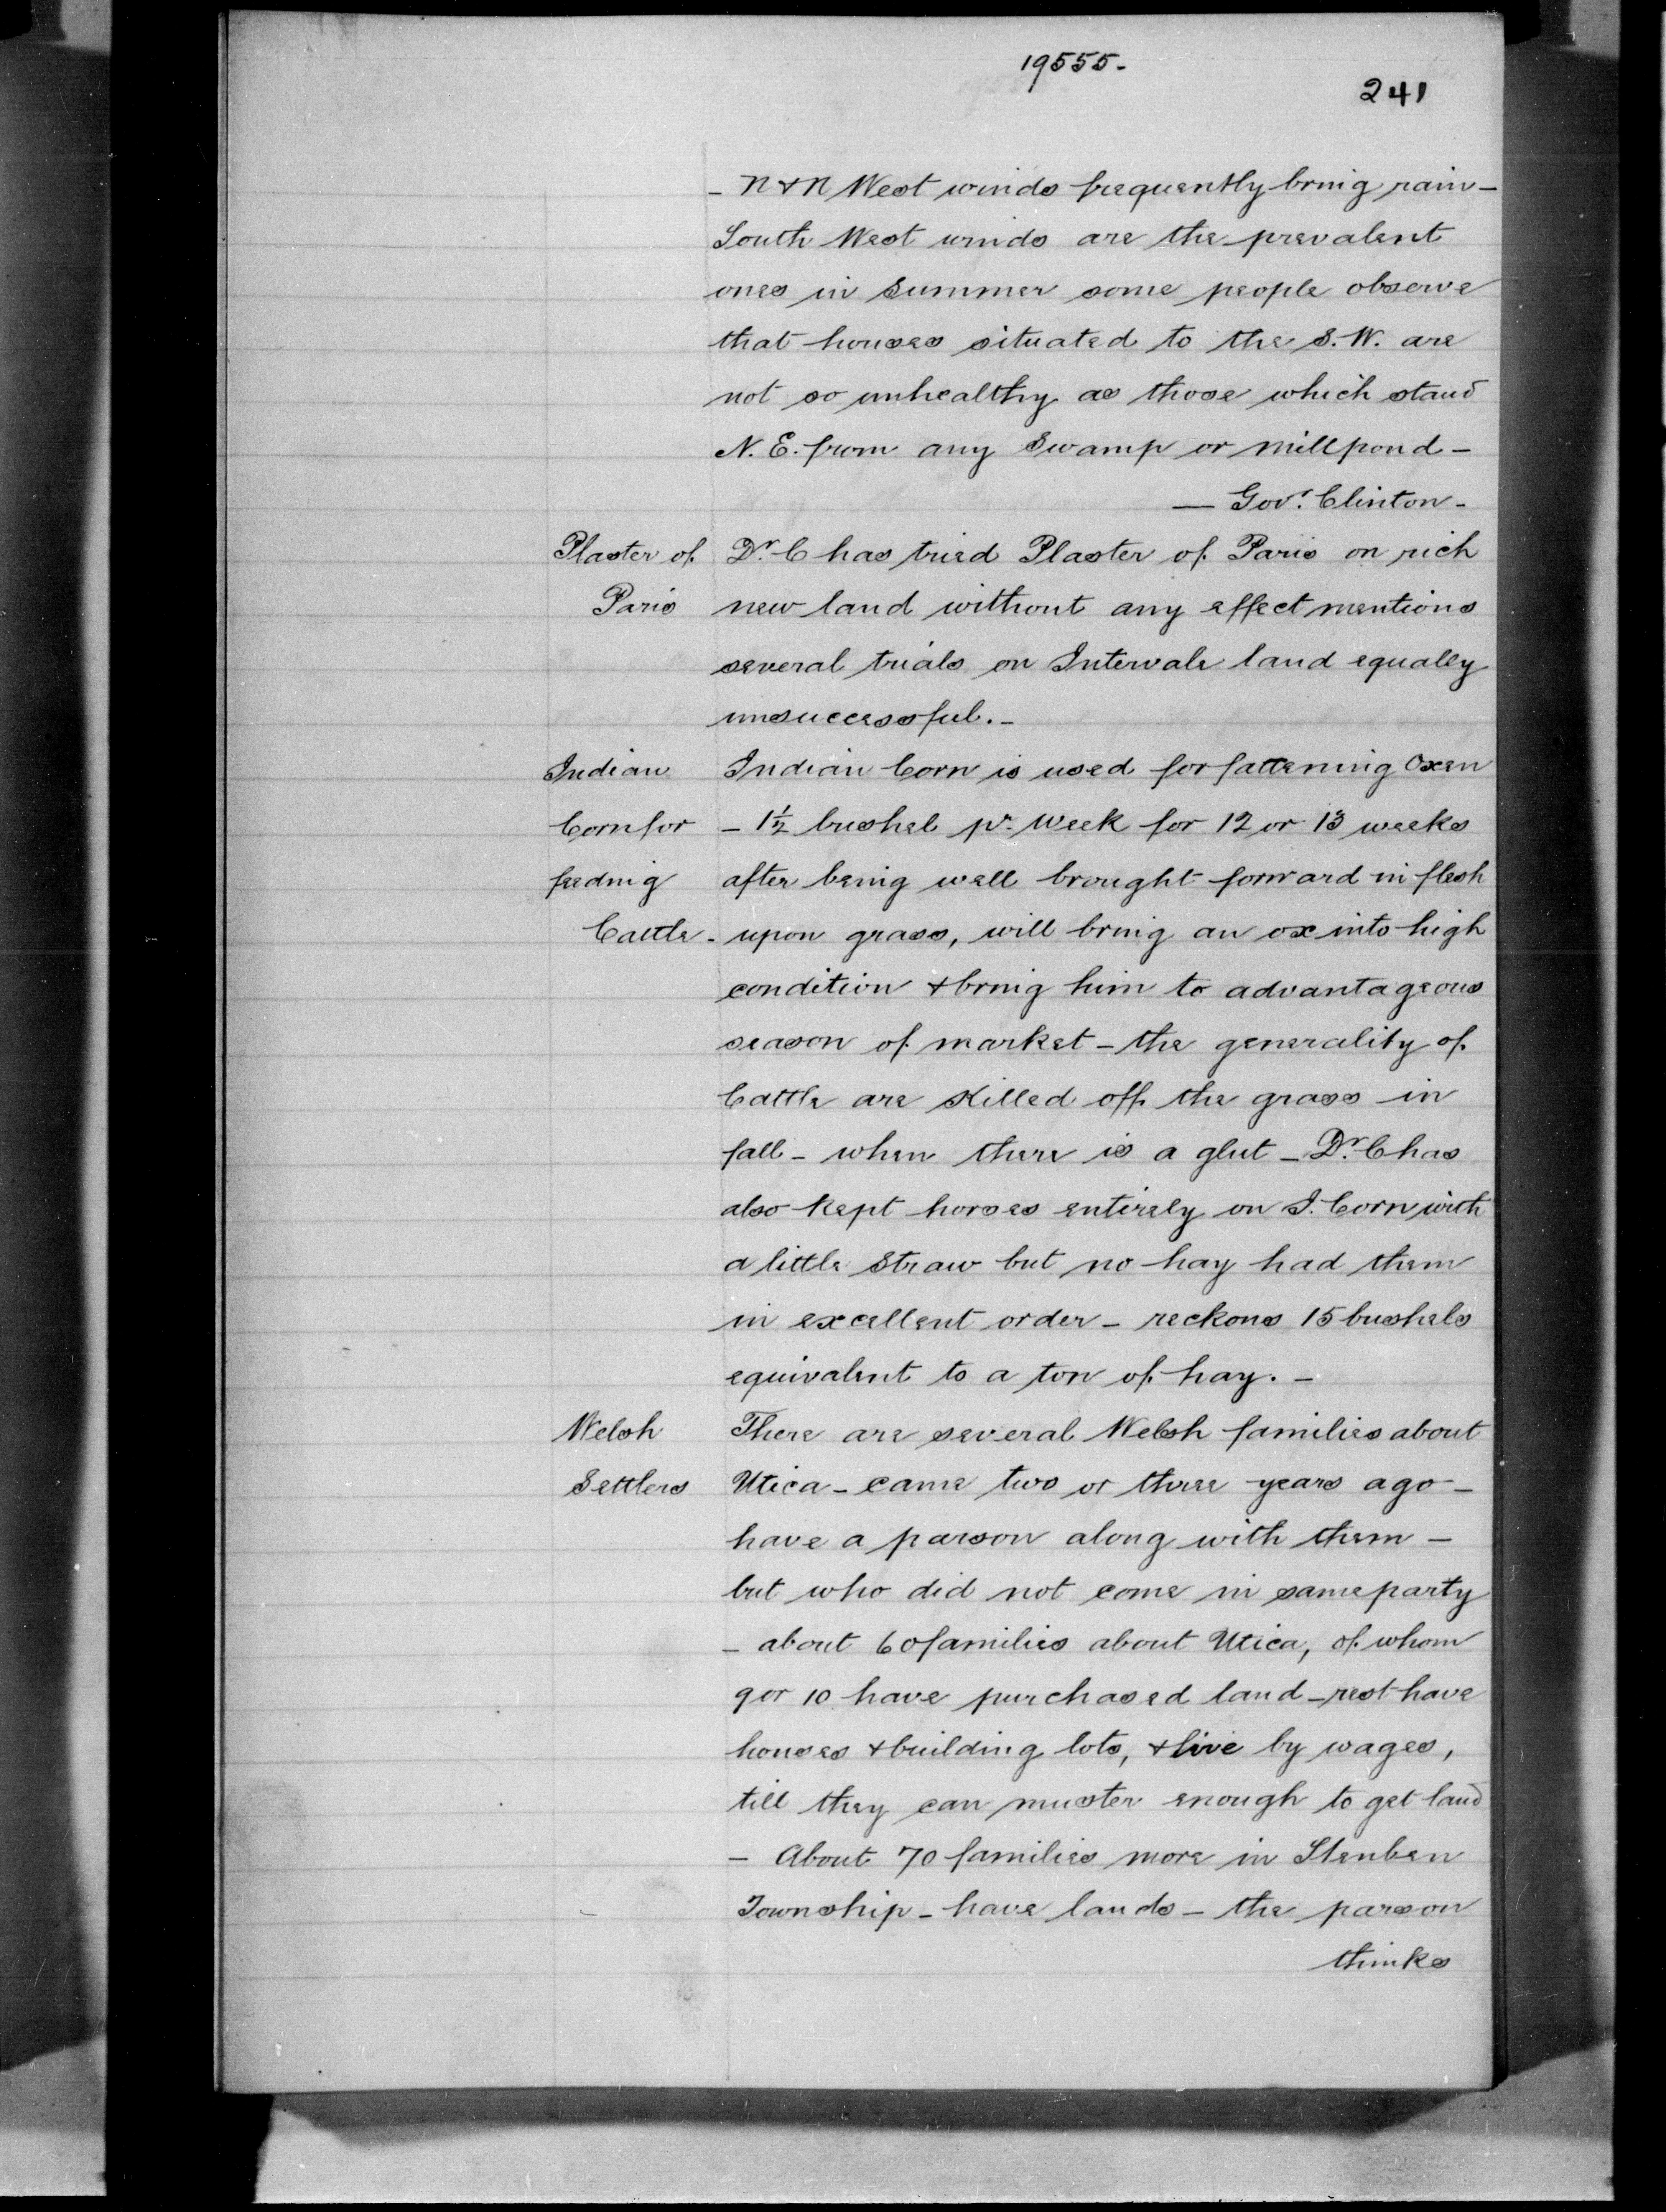 19555.
241
- N & N West winds frequently bring rain -
South West winds are the prevalent
ones in Summer some people observe
that houses situated to the S. W. are
not so unhealthy as those which stand
N. E. from any Swamp or millpond -
— Govr. Clinton -
Plaster of Dr. C has tried Plaster of Paris on rich
Paris new land without any effect mentions
several trials on Intervale land equally
unsuccessful. -
Indian Indian Corn is used for fattening Oxen
Corn for - 1½ bushel pr. Week for 12 or 13 weeks
feeding after being well brought forward in flesh
Cattle - upon grass, will bring an ox into high
condition & bring him to advantageous
season of market - the generality of
Cattle are Killed off the grass in
fall - when there is a glut - Dr. C has
also kept horses entirely on I. Corn with
a little Straw but no hay had them
in excellent order - reckons 15 bushels
equivalent to a ton of hay. -
Welsh There are several Welsh families about
Settlers Utica - came two or three years ago -
have a parson along with them -
but who did not come in same party
- about 60 families about Utica, of whom
9 or 10 have purchased land - rest have
houses & building lots, & live by wages,
till they can muster enough to get land
- About 70 families more in Steuben
Township - have lands - the parson
thinks